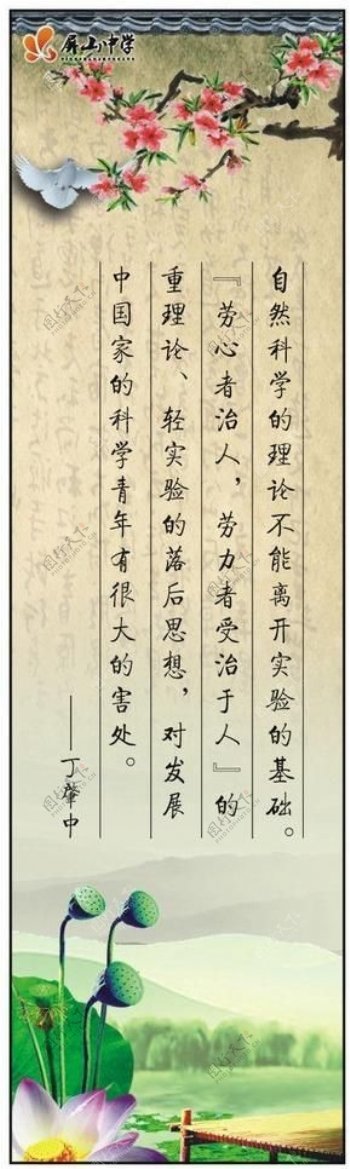 屏山中学
自然科学的理论不能离开实验的基础。
『劳心者治人，劳力者受治于人』的
重理论、轻实验的落后思想，对发展
中国家的科学青年有很大的害处。
——丁肇中